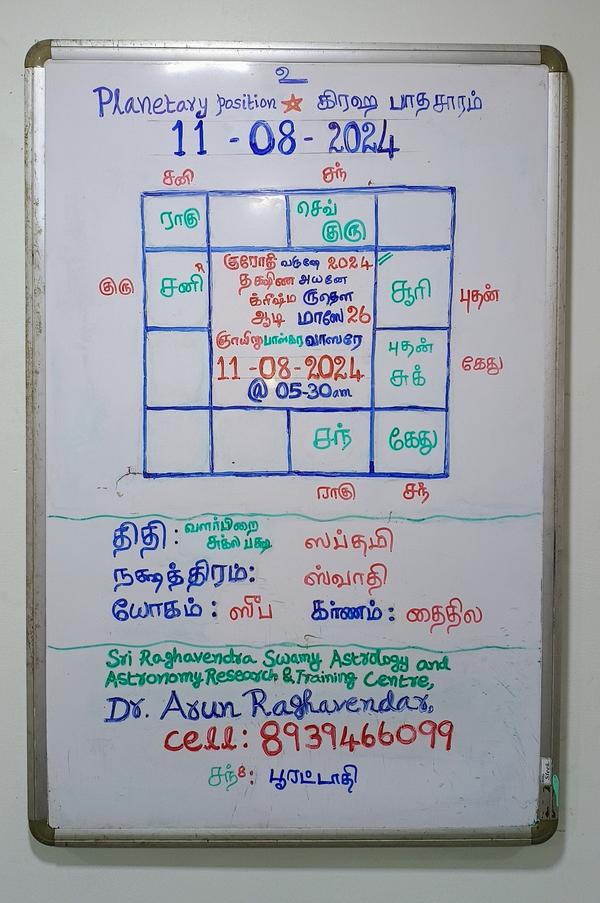 உ
Planetary position கிரஹ பாதசாரம்
11-08-2024
சனி சந்
ராகு செவ்
குரு
குரு சனி R சூரி புதன்
குரோதி வருஷே 2024
தக்ஷிண அயனே
க்ரீஷ்ம ருதௌ
ஆடி மாஸே 26
ஞாயிறு பாஸ்கர வாஸரே
11-08-2024
@ 05-30am
புதன்
சுக் கேது
சந் கேது
ராகு சந்
திதி: வளர்பிறை
சுக்ல பக்ஷ ஸப்தமி
நக்ஷத்திரம்: ஸ்வாதி
யோகம்: ஸீப கர்ணம்: தைதில
Sri Raghavendra Swamy Astrology and
Astronomy Research & Training Centre,
Dr. Arun Raghavendar,
cell: 8939466099
சந்8: பூரட்டாதி